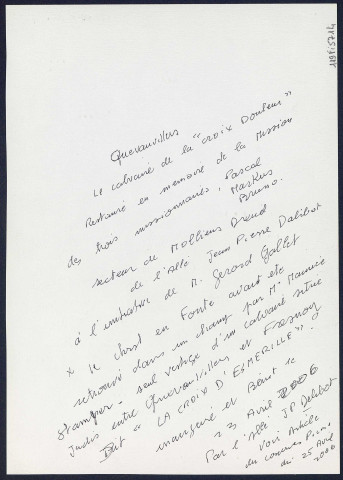 Quevauvillers
Le calvaire de la "CROIX Douleur"
Restauré en memoire de la Mission
des trois missionnaires, Pascal
Markus
Bruno.
secteur de Molliens Dreuil
de l'Abbé Jean Pierre Dalibot
à l'initiative de M. Gerard Gallet
* le Christ en Fonte avait ete
retrouvé dans un champ par Mr Maurice
Stamper - seul vestige d'un calvaire situe
Jadis entre Quevauvillers et Fresnoy
Dit "LA CROIX D'EGMERILLE".
inauguré et Bénit le
23 Avril 2006
Par l'Abbé JP Delibot
Voir Article
du Courrier Picard
du 25 Avril
2006